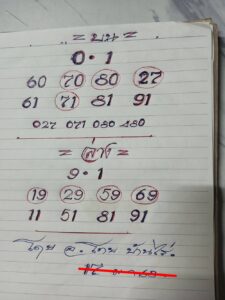 = บน =
0 · 1
60 70 80 27
61 71 81 91
027 071 080 480
= ล่าง =
9 · 1
19 29 59 69
11 51 81 91
โดย อ. โดย บ้านไร่.